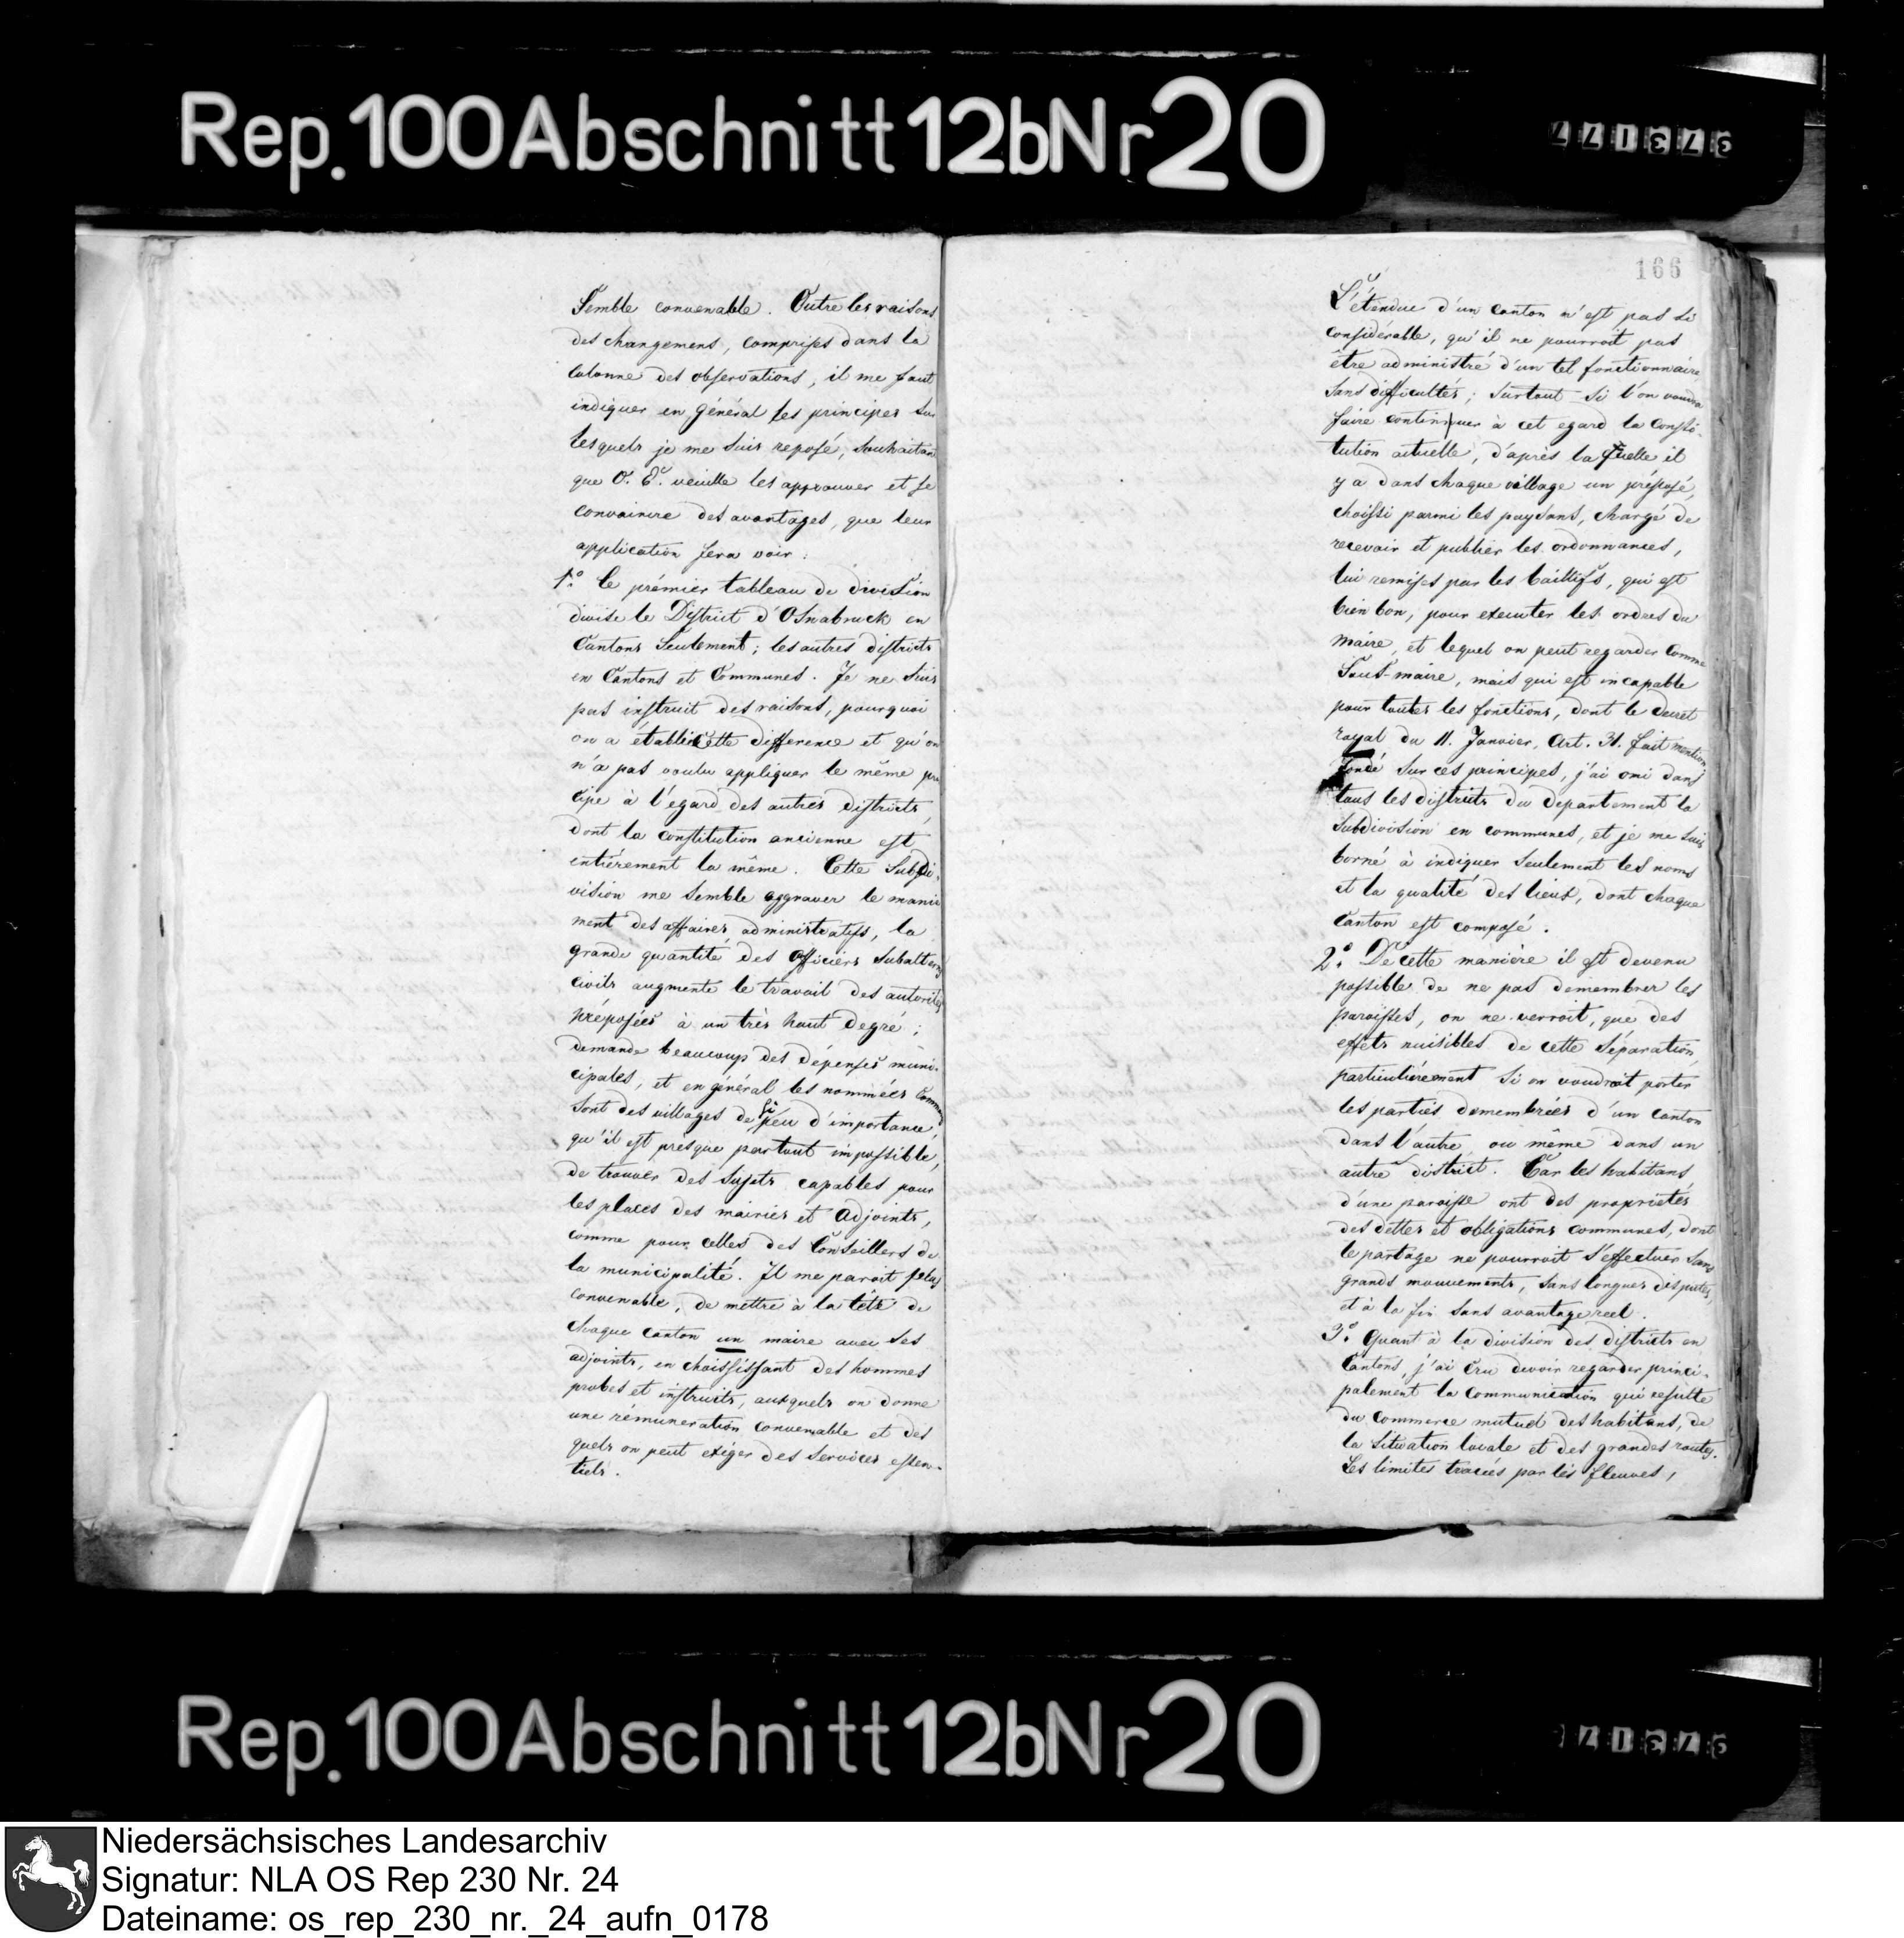 Rep. 100 Abschnitt 12b Nr 20
Semble convenable. Outre les raisons
des changemens, comprises dans la
colonne des observations, il me faut
indiquer en général les principes sur
lesquels je me suis reposé, souhaitant
que V. E. veuille les approuver et se
convaincre des avantages, que leur
application fera voir.
1.° Le prémier tableau de division
divise le District d'Osnabruck en
Cantons seulement; les autres districts
en Cantons et Communes. Je ne suis
pas instruit des raisons, pourquoi
on a établi cette difference et qu'on
n'a pas voulu appliquer le même prin
cipe à l'egard des autres districts,
dont la constitution ancienne est
entièrement la même. Cette Subdi-
vision me semble aggraver le manie
ment des affaires administratifs, la
grande quantité des officiers subalternes
civils augmente le travail des autorités
préposées à un très haut degré;
demande beaucoup des dépenses muni-
cipales, et en général les nommées Communes
sont des villages de si peu d'importance,
qu'il est presque partout impossible,
de trouver des sujets capables pour
les places des mairies et adjoints,
comme pour celles des Conseillers de
la municipalité. Il me paroit plus
convenable, de mettre à la tête de
chaque canton un maire avec ses
adjoints, en choisissant des hommes
probes et instruits, auxquels on donne
une rémuneration convenable et des
quels on peut exiger des services essen-
tiels.
166
L'étendue d'un canton n'est pas si
considérable, qu'il ne pourroit pas
être administré d'un tel fonctionnaire
sans difficultés; surtout si l'on voudra
faire continuer à cet egard la consti-
tution actuelle, d'après laquelle il
y a dans chaque village un préposé,
choissi parmi les paysans, chargé de
recevoir et publier les ordonnances,
lui remises par les baillifs, qui est
bien bon, pour executer les ordres du
maire, et lequel on peut regarder comme
Sous-maire, mais qui est incapable
pour toutes les fonctions, dont le decret
royal du 11. Janvier, Art. 31. fait mention.
Fondé sur ces principes, j'ai omi dans
tous les districts du departement la
subdivision en communes, et je me suis
borné à indiquer seulement les noms
et la qualité des lieux, dont chaque
Canton est composé.
2.° De cette manière il est devenu
possible de ne pas demembrer les
paroisses, on ne verroit, que des
effets nuisibles de cette séparation,
particulièrement si on voudroit porter
les parties demembrées d'un canton
dans l'autre, ou même dans un
autre district. Car les habitans
d'une paroisse ont des proprietés
des dettes et obligations communes, dont
le partage ne pourroit s'effectuer sans
grands mouvements, sans longues disputes,
et à la fin sans avantage reel.
3.° Quant à la division des districts en
Cantons, j'ai cru devoir regarder princi-
palement la communication qui resulte
du commerce mutuel des habitans, de
la situation locale et des grandes routes.
Les limites tracées par les fleuves,
Rep. 100 Abschnitt 12b Nr 20
Niedersächsisches Landesarchiv
Signatur: NLA OS Rep 230 Nr. 24
Dateiname: os_rep_230_nr._24_aufn_0178